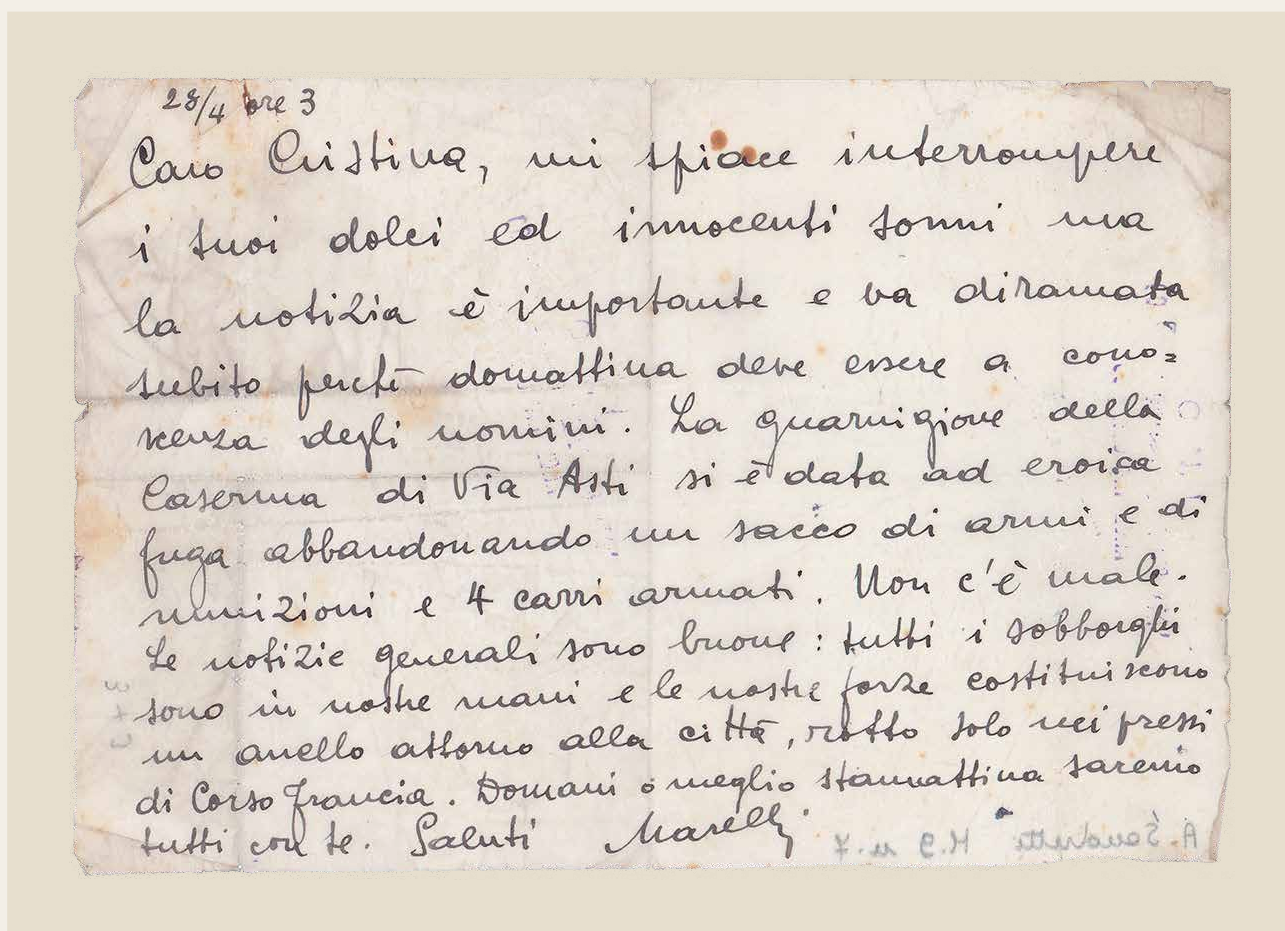 28/4 ore 3
Caro Cristina, mi spiace interrompere
i tuoi dolci ed innocenti sonni ma
la notizia è importante e va diramata
subito perchè domattina deve essere a cono=
scenza degli uomini. La guarnigione della
Caserma di Via Asti si è data ad eroica
fuga abbandonando un sacco di armi e di
munizioni e 4 carri armati. Non c'è male.
Le notizie generali sono buone: tutti i sobborghi
sono in nostre mani e le nostre forze costituiscono
un anello attorno alla città, rotto solo nei pressi
di Corso Francia. Domani o meglio stamattina saremo
tutti con te. Saluti Marelli
A. M. 9 n. 7